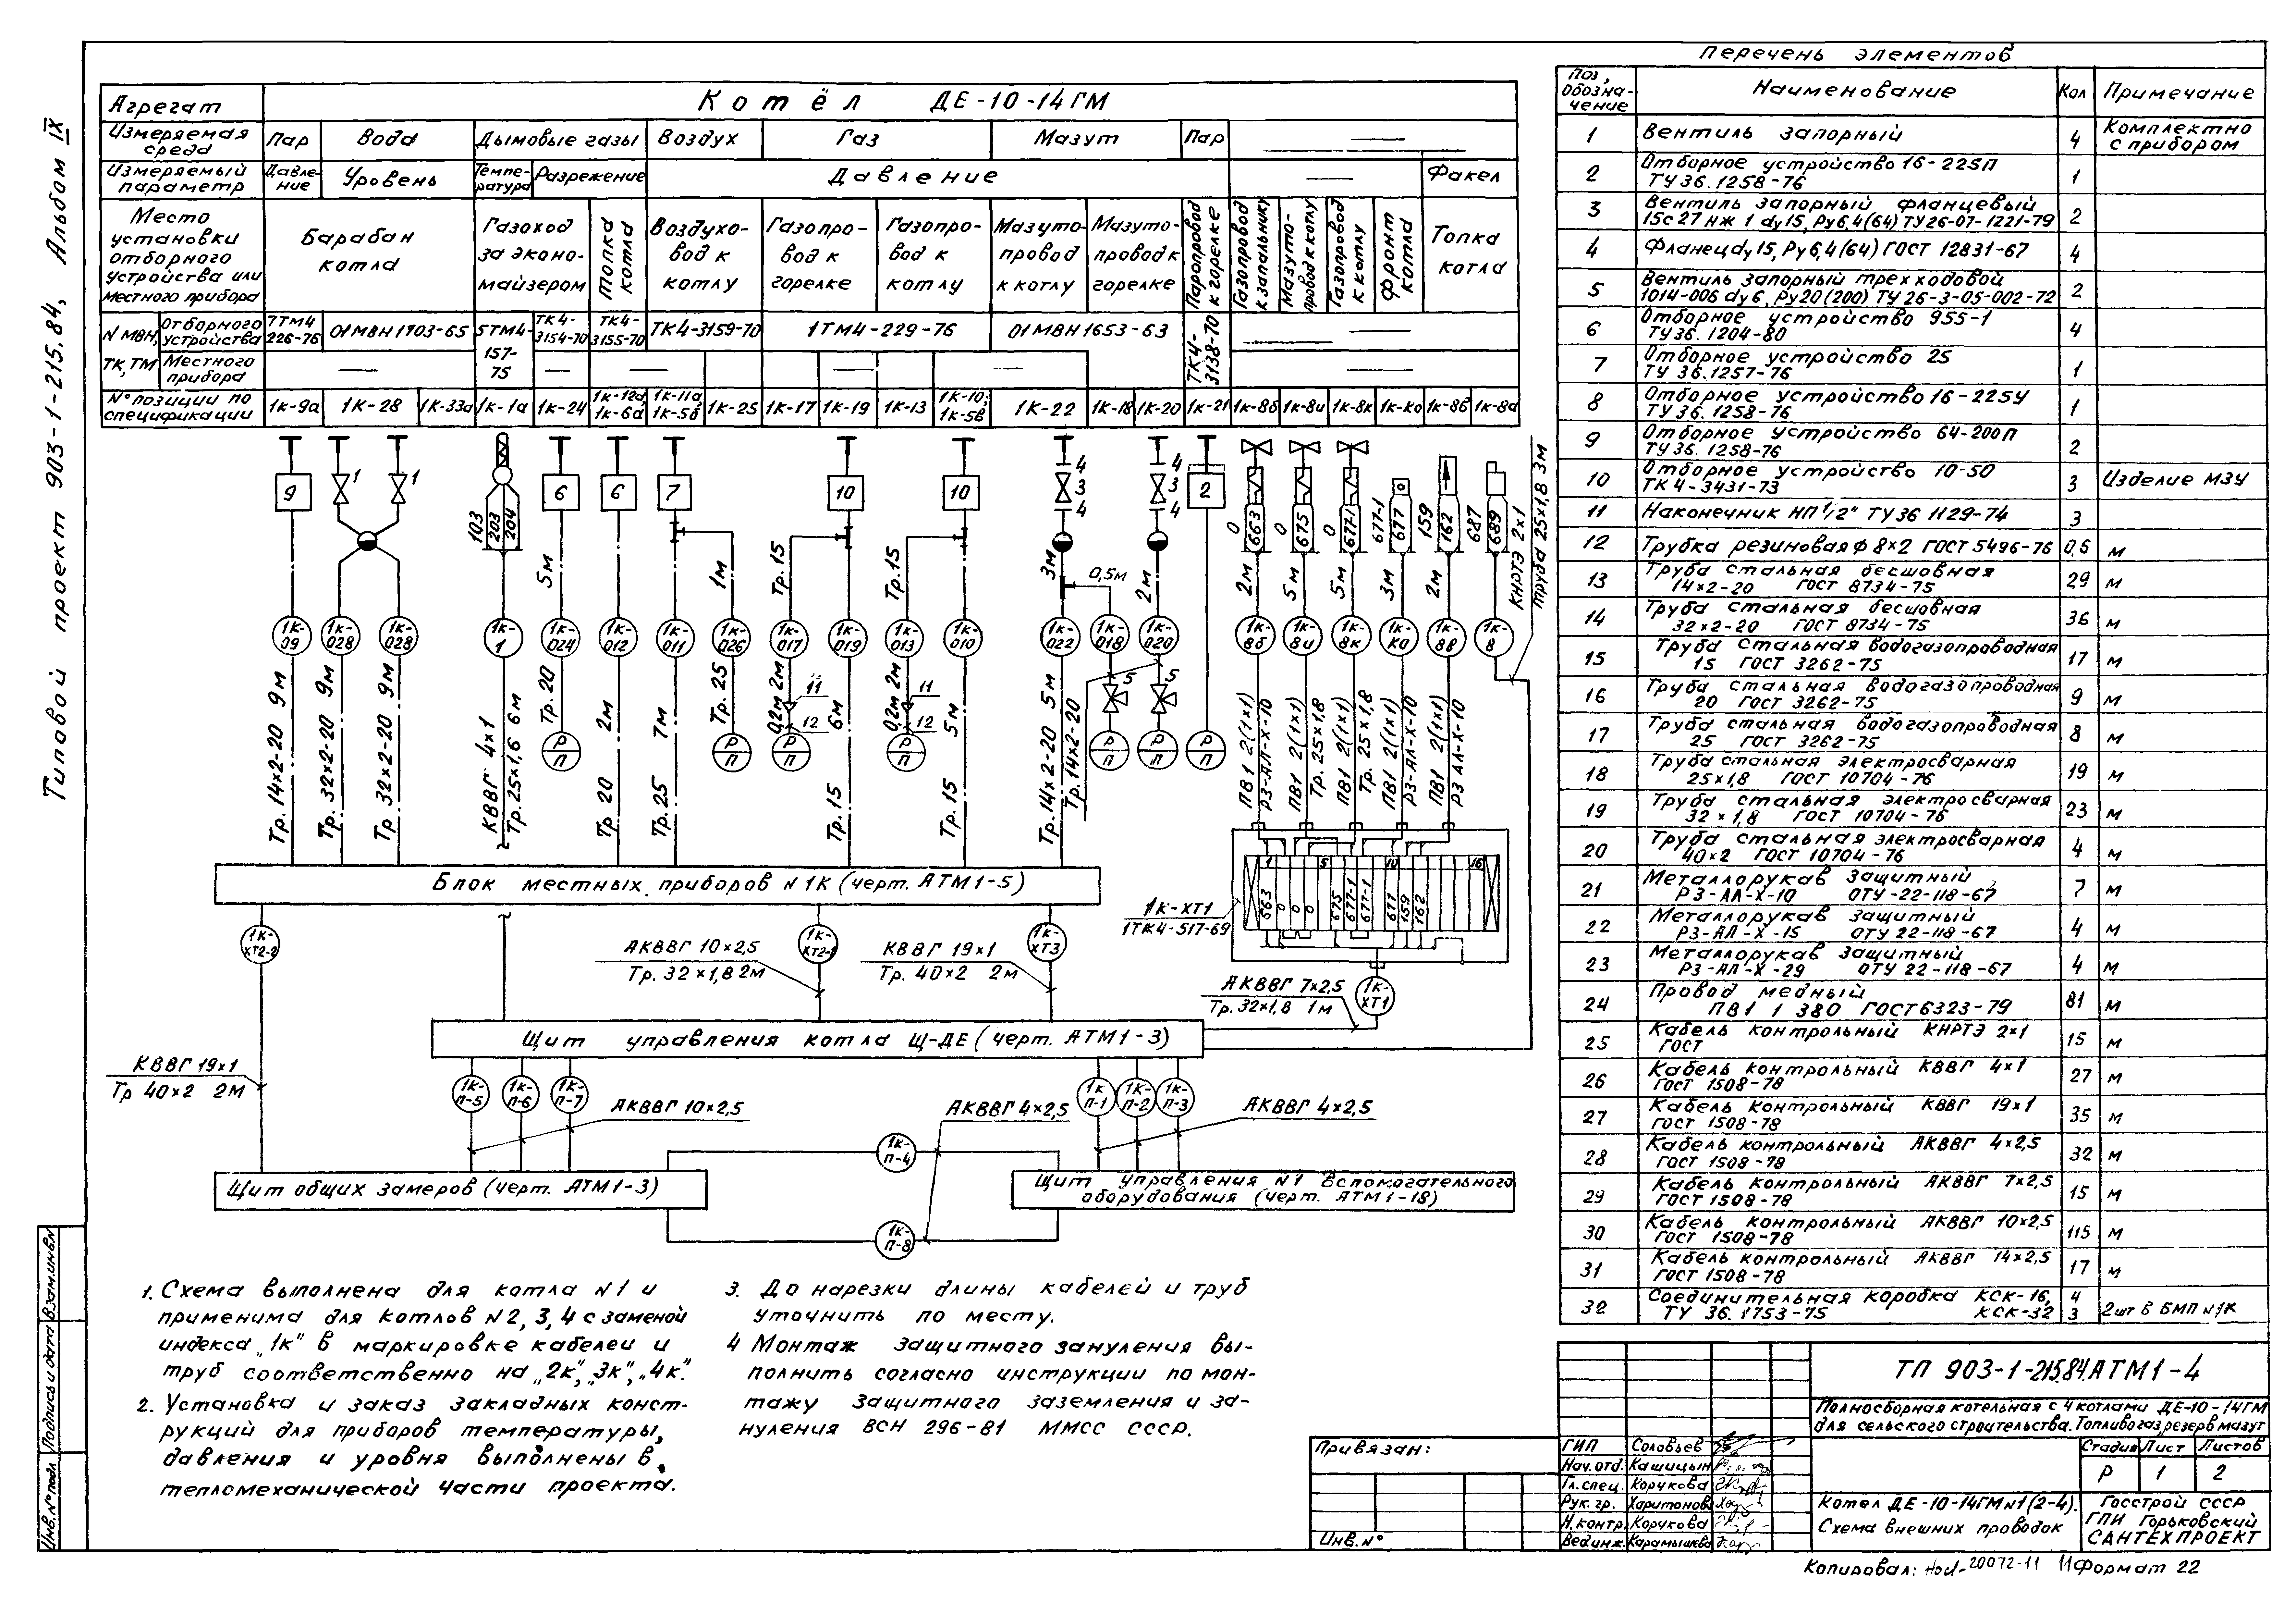 Типовой проект 903-1-215.84, Альбом IX
Агрегат
Котёл ДЕ-10-14ГМ
Измеряемая среда
Пар
Вода
Дымовые газы
Воздух
Газ
Мазут
Пар
Измеряемый параметр
Давле-
ние
Уровень
Темпе-
ратура
Разрежение
Давление
Факел
Место
установки
отборного
устройства или
местного прибора
Барабан
котла
Газоход
за эконо-
майзером
Топка
котла
Воздухо-
вод к
котлу
Газопро-
вод к
горелке
Газопро-
вод к
котлу
Мазуто-
провод
к котлу
Мазуто-
провод к
горелке
Паропровод
к горелке
Газопровод
к запальнику
Мазуто-
провод к котлу
Газопровод
к котлу
Фронт
котла
Топка
котла
N МВН,
ТК, ТМ
Отборного
устройства
7ТМ4
226-76
01МВН1903-65
5ТМ4-
157-
75
ТК4-
3154-70
ТК4-
3155-70
ТК4-3159-70
1ТМ4-229-76
01МВН1653-63
ТК4-
3138-70
Местного
прибора
N° позиции по
спецификации
1к-9а
1К-28
1к-33а
1к-1а
1к-24
1к-12а
1к-6а
1к-11а
1к-5б
1к-25
1к-17
1к-19
1к-13
1к-10;
1к-5в
1К-22
1к-18
1к-20
1к-21
1к-8б
1к-8и
1к-8к
1к-ко
1к-8в
1к-8а
9
1
1
103
203
204
6
6
7
10
10
4
3
4
4
3
4
2
0
663
0
675
0
677-1
677-1
677
159
162
687
689
КНРТЭ 2×1
труба 25×1,8 3м
5м
1м
Тр.15
Тр.15
3м
0,5м
2м
2м
5м
5м
3м
2м
1к-
09
1к-
028
1к-
028
1к-
1
1к-
024
1к-
012
1к-
011
1к-
026
1к-
017
1к-
019
1к-
013
1к-
010
1к-
022
1к-
018
1к-
020
1к-
8б
1к-
8и
1к-
8к
1к-
ко
1к-
8в
1к-
8
Тр.14×2-20 9м
Тр. 32×2-20 9м
Тр. 32×2-20 9м
КВВГ 4×1
Тр.25×1,6 6м
Тр.20
Тр 20 2м
Тр.25 7м
Тр.25
0,2м 2м
11
12
Тр.15 6м
0,2м 2м
11
12
Тр.15 5м
Тр.14×2-20 5м
Тр.14×2-20
5
5
Р
П
Р
П
Р
П
Р
П
Р
П
Р
П
Р
П
ПВ1 2(1×1)
РЗ-АЛ-Х-10
ПВ1 2(1×1)
Тр.25×1,8
ПВ1 2(1×1)
Тр. 25×1,8
ПВ1 2(1×1)
РЗ-АЛ-Х-10
ПВ1 2(1×1)
РЗ АЛ-Х-10
Блок местных приборов N 1К (черт. АТМ1-5)
1к-ХТ1
1ТК4-517-69
1
5
10
16
663
0
0
0
675
677-1
677-1
677
159
162
1к-
ХТ2-2
АКВВГ 10×2,5
Тр. 32×1,8 2м
1к-
ХТ2-1
КВВГ 19×1
Тр. 40×2 2м
1к-
ХТ3
АКВВГ 7×2,5
Тр.32×1,8 1м
1к-
ХТ1
Щит управления котла Щ-ДЕ (черт. АТМ1-3)
КВВГ 19×1
Тр 40×2 2м
1к-
П-5
1к-
П-6
1к-
П-7
АКВВГ 10×2,5
АКВВГ 4×2,5
1к
П-1
1к-
П-2
1к-
П-3
АКВВГ 4×2,5
1к-
П-4
Щит общих замеров (черт. АТМ1-3)
Щит управления N1 вспомогательного
оборудования (черт. АТМ1-18)
1к-
П-8
1. Схема выполнена для котла N1 и
применима для котлов N2, 3, 4 с заменой
индекса „1к" в маркировке кабелей и
труб соответственно на „2к", „3к", „4к".
2. Установка и заказ закладных конст-
рукций для приборов температуры,
давления и уровня выполнены в
тепломеханической части проекта.
3. До нарезки длины кабелей и труб
уточнить по месту.
4 Монтаж защитного зануления вы-
полнить согласно инструкции по мон-
тажу защитного заземления и за-
нуления ВСН 296-81 ММСС СССР.
Перечень элементов
Поз,
обозна-
чение
Наименование
Кол
Примечание
1 Вентиль запорный 4 Комплектно
с прибором
2 Отборное устройство 16-225П
ТУ 36.1258-76 1
3 Вентиль запорный фланцевый
15с27нж 1 dу15, Ру6,4(64) ТУ26-07-1221-79 2
4 Фланец dу15, Ру6,4(64) ГОСТ 12831-67 4
5 Вентиль запорный трехходовой
1014-006 dу6, Ру20(200) ТУ 26-3-05-002-72 2
6 Отборное устройство 955-1
ТУ36.1204-80 4
7 Отборное устройство 25
ТУ 36.1257-76 1
8 Отборное устройство 16-225У
ТУ36.1258-76 1
9 Отборное устройство 64-200П
ТУ36.1258-76 2
10 Отборное устройство 10-50
ТК4-3431-73 3 Изделие МЗУ
11 Наконечник НП 1/2" ТУ36 1129-74 3
12 Трубка резиновая ф 8×2 ГОСТ 5496-76 0,6 м
13 Труба стальная бесшовная
14×2-20 ГОСТ 8734-75 29 м
14 Труба стальная бесшовная
32×2-20 ГОСТ 8734-75 36 м
15 Труба стальная водогазопроводная
15 ГОСТ 3262-75 17 м
16 Труба стальная водогазопроводная
20 ГОСТ 3262-75 9 м
17 Труба стальная водогазопроводная
25 ГОСТ 3262-75 8 м
18 Труба стальная электросварная
25×1,8 ГОСТ 10704-76 19 м
19 Труба стальная электросварная
32×1,8 ГОСТ 10704-76 23 м
20 Труба стальная электросварная
40×2 ГОСТ 10704-76 4 м
21 Металлорукав защитный
РЗ-АЛ-Х-10 ОТУ-22-118-67 7 м
22 Металлорукав защитный
РЗ-АЛ-Х-15 ОТУ 22-118-67 4 м
23 Металлорукав защитный
РЗ-АЛ-Х-29 ОТУ 22-118-67 4 м
24 Провод медный
ПВ1 1 380 ГОСТ6323-79 81 м
25 Кабель контрольный КНРТЭ 2×1
ГОСТ 15 м
26 Кабель контрольный КВВГ 4×1
ГОСТ 1508-78 27 м
27 Кабель контрольный КВВГ 19×1
ГОСТ 1508-78 35 м
28 Кабель контрольный АКВВГ 4×2,5
ГОСТ 1508-78 32 м
29 Кабель контрольный АКВВГ 7×2,5
ГОСТ 1508-78 15 м
30 Кабель контрольный АКВВГ 10×2,5
ГОСТ 1508-78 115 м
31 Кабель контрольный АКВВГ 14×2,5
ГОСТ 1508-78 17 м
32 Соединительная коробка КСК-16, 4
ТУ 36.1753-75 КСК-32 3 2шт в БМП N1К
ТП 903-1-215.84.АТМ1-4
Полносборная котельная с 4 котлами ДЕ-10-14ГМ
для сельского строительства. Топливо газ, резерв мазут
Стадия Лист Листов
Р 1 2
Котел ДЕ-10-14ГМ N1 (2-4).
Схема внешних проводок
Госстрой СССР
ГПИ Горьковский
САНТЕХПРОЕКТ
ГИП Соловьев
Нач.отд. Кашицын
Гл.спец. Корчкова
Рук.гр. Харитонов
Н.контр. Корчкова
Вед.инж. Карамышева
Привязан:
Инв.N°
Инв.N°подл
Подпись и дата
Взам.инв.N
Копировал: 20072-11 11 Формат 22